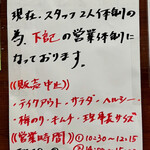 現在、スタッフ2人体制の
為、下記の営業体制に
なっております。
《販売中止》
・テイクアウト・サラダ・ヘルシー
・稀のり・キムチ・理年長サイズ
《営業時間》① 10:30~12:15